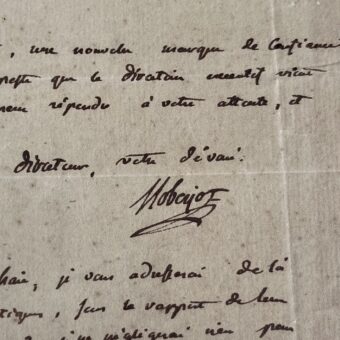 , une nouvelle marque de confiance
que le directoire executif vient
répondu à votre attente, et
directeur, votre dévoué.
je vous adresserai de là
, sous le rapport de leur
je ne négligerai rien pour